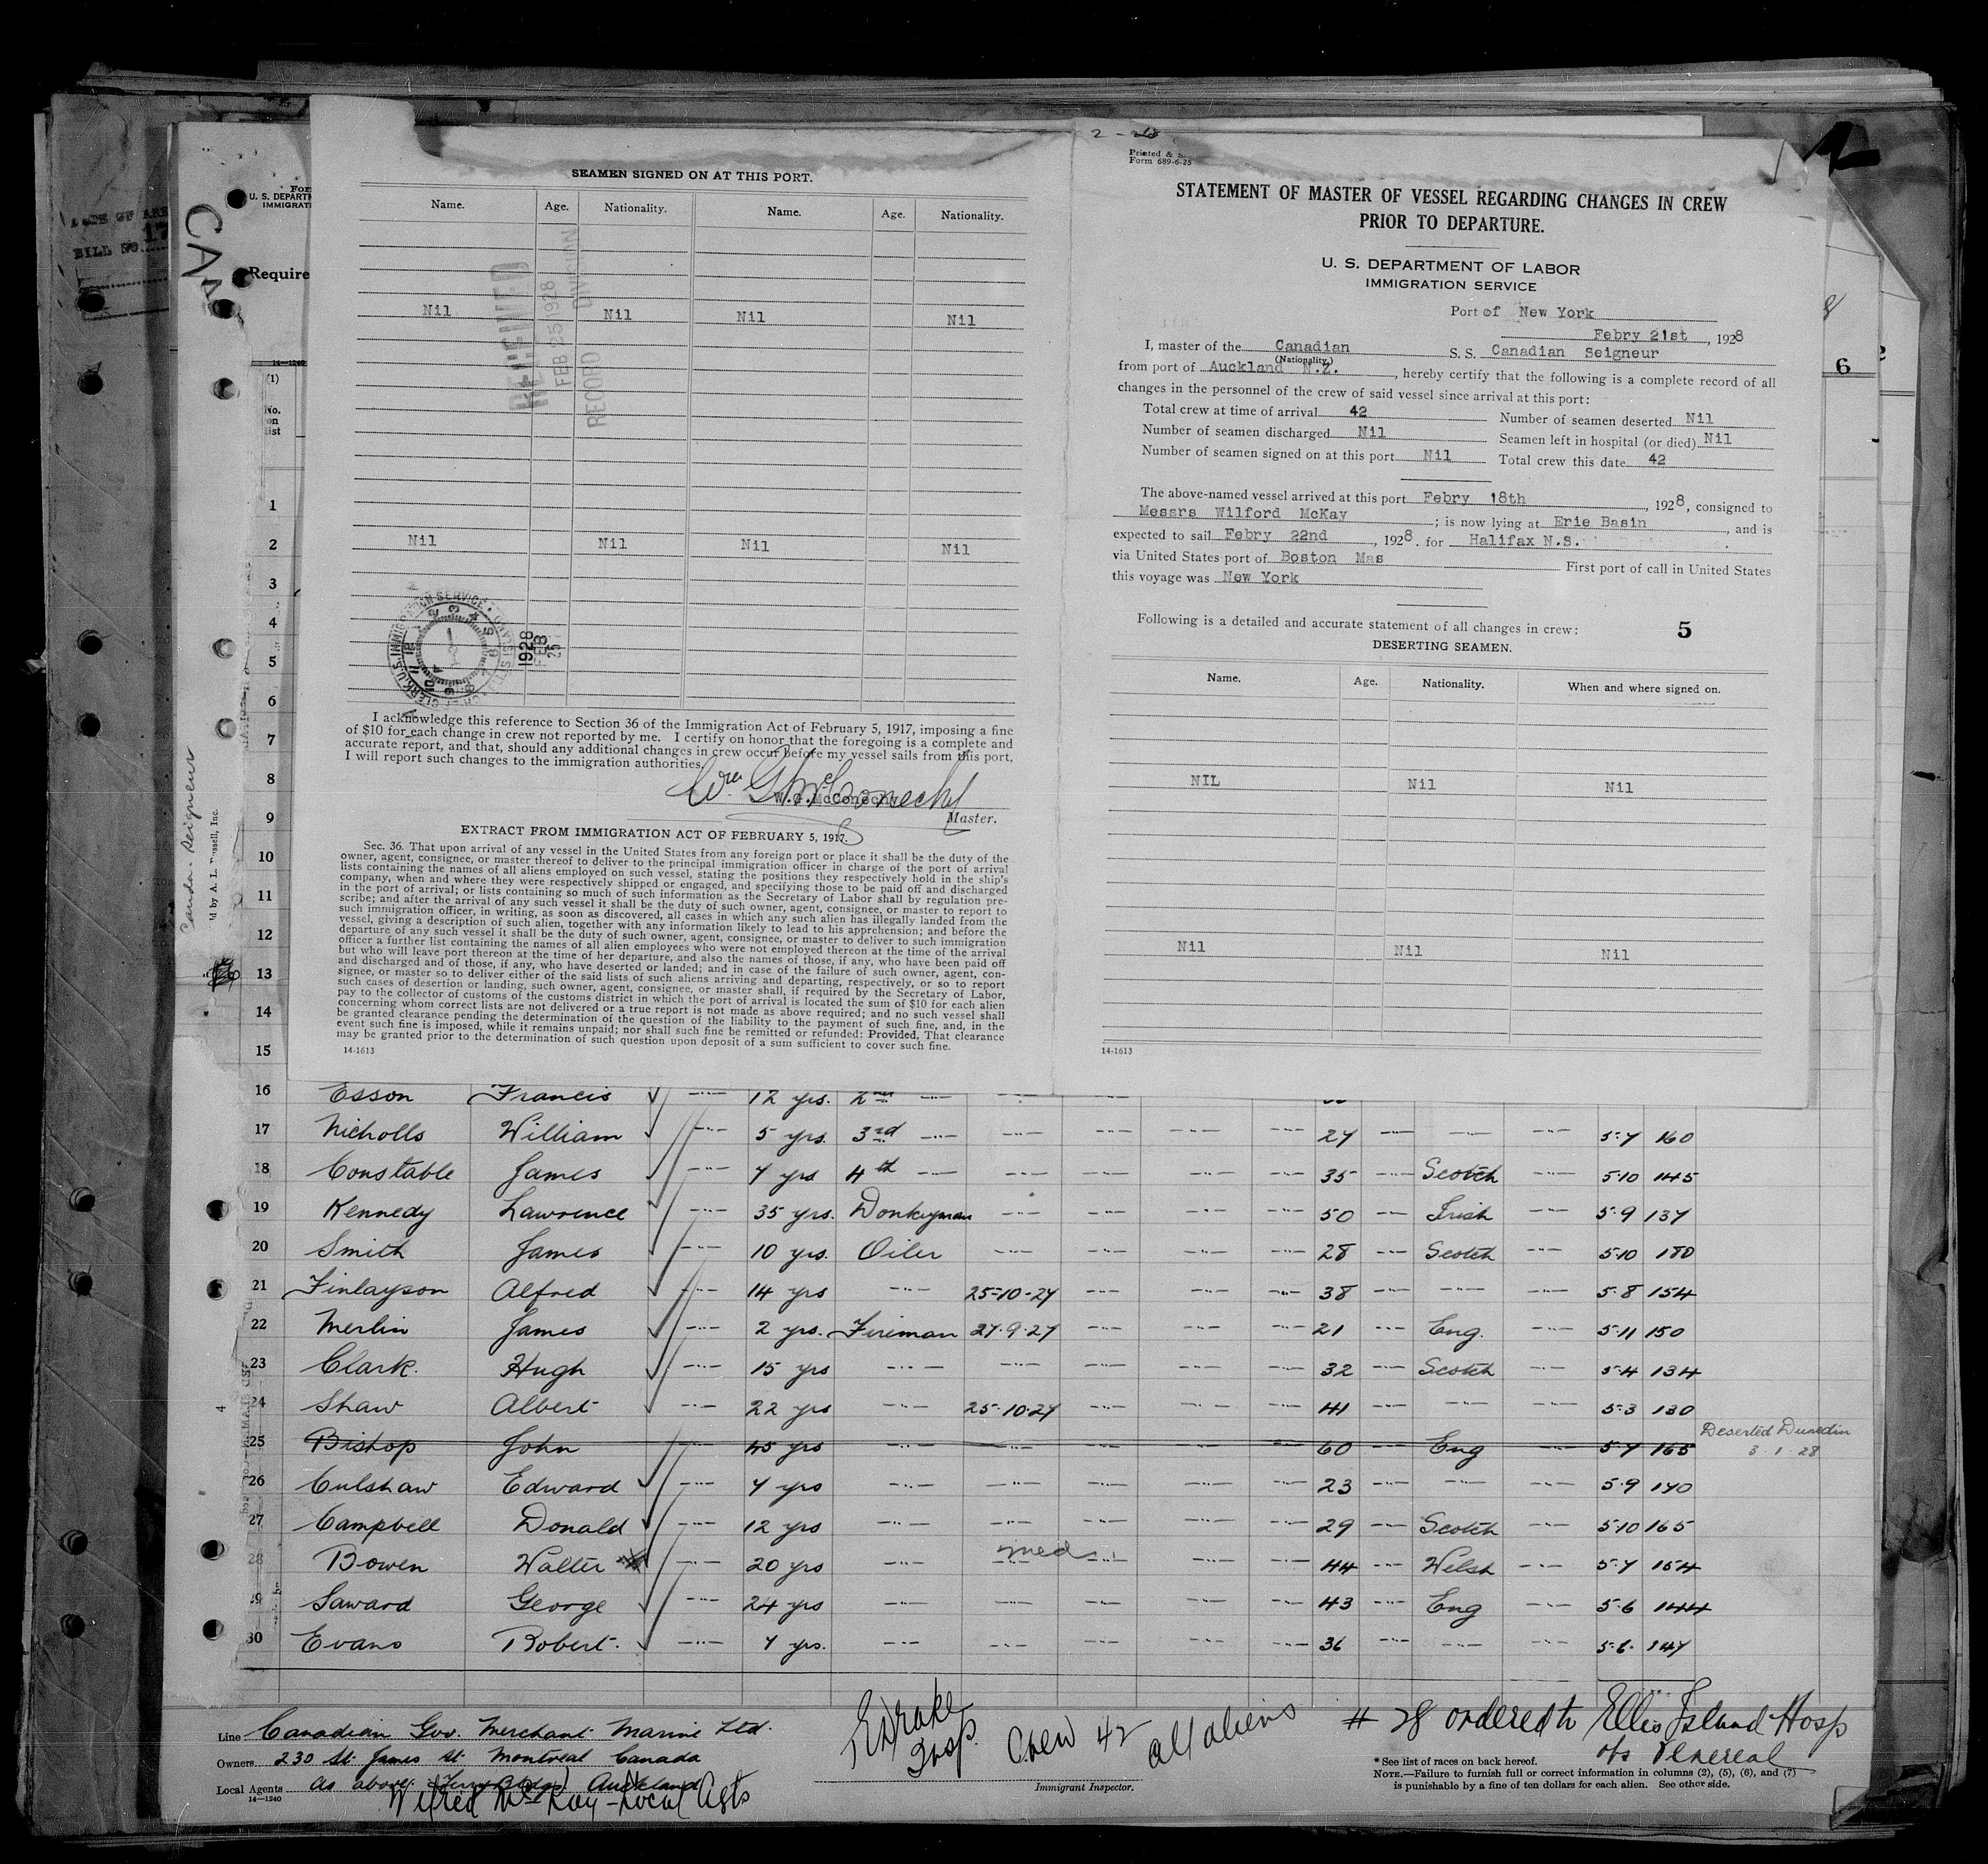 SEAMEN SIGNED ON AT THIS PORT.
Name. Age. Nationality. Name. Age. Nationality.
Nil Nil Nil Nil
RECEIVED
FEB 25 1928
RECORD DIVISION
Nil Nil Nil Nil
1928
FEB
25
I acknowledge this reference to Section 36 of the Immigration Act of February 5, 1917, imposing a fine
of $10 for each change in crew not reported by me. I certify on honor that the foregoing is a complete and
accurate report, and that, should any additional changes in crew occur before my vessel sails from this port,
I will report such changes to the immigration authorities.
Wm. G. McConechy
W.G.McConechy
Master.
EXTRACT FROM IMMIGRATION ACT OF FEBRUARY 5, 1917.
Sec. 36. That upon arrival of any vessel in the United States from any foreign port or place it shall be the duty of the
owner, agent, consignee, or master thereof to deliver to the principal immigration officer in charge of the port of arrival
lists containing the names of all aliens employed on such vessel, stating the positions they respectively hold in the ship's
company, when and where they were respectively shipped or engaged, and specifying those to be paid off and discharged
in the port of arrival; or lists containing so much of such information as the Secretary of Labor shall by regulation pre-
scribe; and after the arrival of any such vessel it shall be the duty of such owner, agent, consignee, or master to report to
such immigration officer, in writing, as soon as discovered, all cases in which any such alien has illegally landed from the
vessel, giving a description of such alien, together with any information likely to lead to his apprehension; and before the
departure of any such vessel it shall be the duty of such owner, agent, consignee, or master to deliver to such immigration
officer a further list containing the names of all alien employees who were not employed thereon at the time of the arrival
but who will leave port thereon at the time of her departure, and also the names of those, if any, who have been paid off
and discharged and of those, if any, who have deserted or landed; and in case of the failure of such owner, agent, con-
signee, or master so to deliver either of the said lists of such aliens arriving and departing, respectively, or so to report
such cases of desertion or landing, such owner, agent, consignee, or master shall, if required by the Secretary of Labor,
pay to the collector of customs of the customs district in which the port of arrival is located the sum of $10 for each alien
concerning whom correct lists are not delivered or a true report is not made as above required; and no such vessel shall
be granted clearance pending the determination of the question of the liability to the payment of such fine, and, in the
event such fine is imposed, while it remains unpaid; nor shall such fine be remitted or refunded: Provided, That clearance
may be granted prior to the determination of such question upon deposit of a sum sufficient to cover such fine.
14-1613
Printed &
Form 689-6-25
STATEMENT OF MASTER OF VESSEL REGARDING CHANGES IN CREW
PRIOR TO DEPARTURE.
U. S. DEPARTMENT OF LABOR
IMMIGRATION SERVICE
Port of New York
Febry 21st, 1928
I, master of the Canadian S. S. Canadian Seigneur
(Nationality)
from port of Auckland N.Z., hereby certify that the following is a complete record of all
changes in the personnel of the crew of said vessel since arrival at this port:
Total crew at time of arrival 42 Number of seamen deserted Nil
Number of seamen discharged Nil Seamen left in hospital (or died) Nil
Number of seamen signed on at this port Nil Total crew this date 42
The above-named vessel arrived at this port Febry 18th, 1928, consigned to
Messrs Wilford McKay; is now lying at Erie Basin, and is
expected to sail Febry 22nd, 1928. for Halifax N.S.
via United States port of Boston Mas First port of call in United States
this voyage was New York
Following is a detailed and accurate statement of all changes in crew: 5
DESERTING SEAMEN.
Name. Age. Nationality. When and where signed on.
NIL Nil Nil
Nil Nil Nil
14-1613
U. S. DEPARTM
IMMIGRATI
Require
14-1240
(1)
No.
on
list
6
Canadn. Seigneur
1
2
3
4
5
6
7
8
9
10
11
12
13
14
15
16 Esson Francis 12 yrs. 2nd
17 Nicholls William 5 yrs. 3rd 27 5·7 160
18 Constable James 7 yrs 4th 35 Scotch 5·10 145
19 Kennedy Lawrence 35 yrs. Donkeyman 50 Irish 5·9 137
20 Smith James 10 yrs. Oiler 28 Scotch 5·10 180
21 Finlayson Alfred 14 yrs 25-10-27 38 5·8 154
22 Merlin James 2 yrs. Fireman 27·9·27 21 Eng. 5·11 150
23 Clark. Hugh 15 yrs 32 Scotch 5·4 134
24 Shaw Albert 22 yrs 25·10·27 41 5·3 130
25 Bishop John 45 yrs 60 Eng 5·7 165 Deserted Dunedin
3·1·28
26 Culshaw Edward 7 yrs 23 5·9 140
27 Campbell Donald 12 yrs 29 Scotch 5·10 165
28 Bowen Walter 20 yrs med 44 Welsh 5·7 154
29 Saward George 24 yrs 43 Eng 5·6 144
30 Evans Robert. 7 yrs. 36 5·6· 147
Line Canadian Gov. Merchant Marine Ltd.
Owners 230 St. James St. Montreal Canada
Local Agents as above Auckland
14-1240
Wilfred McKay - Local Agts
Drake
Insp.
Crew 42 all aliens
Immigrant Inspector.
# 28 ordered to Ellis Island Hosp
Venereal
*See list of races on back hereof.
NOTE.—Failure to furnish full or correct information in columns (2), (5), (6), and (7)
is punishable by a fine of ten dollars for each alien. See other side.